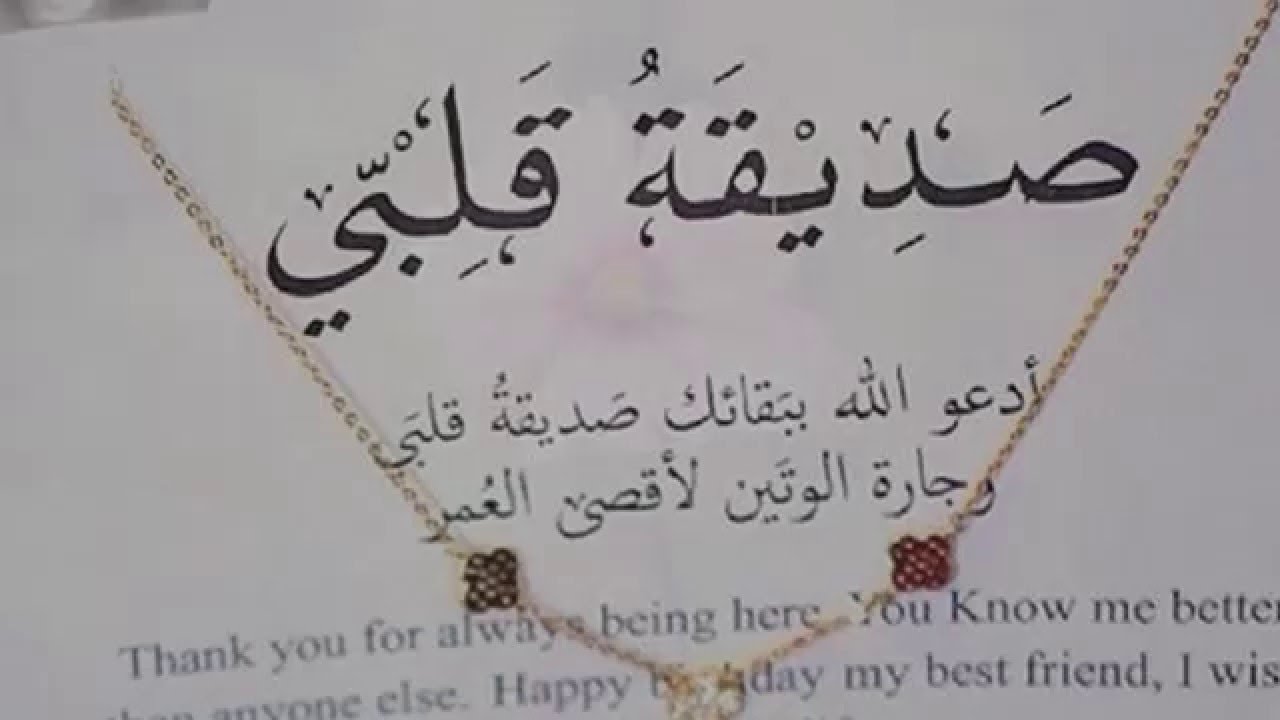 صَدِيْقَةُ قَلِبْيّ
أدعو الله ببَقائك صَديقةُ قلبَي
وجارة الوتَين لأقصى العُمر
Thank you for always being here. You Know me better
than anyone else. Happy birthday my best friend, I wis